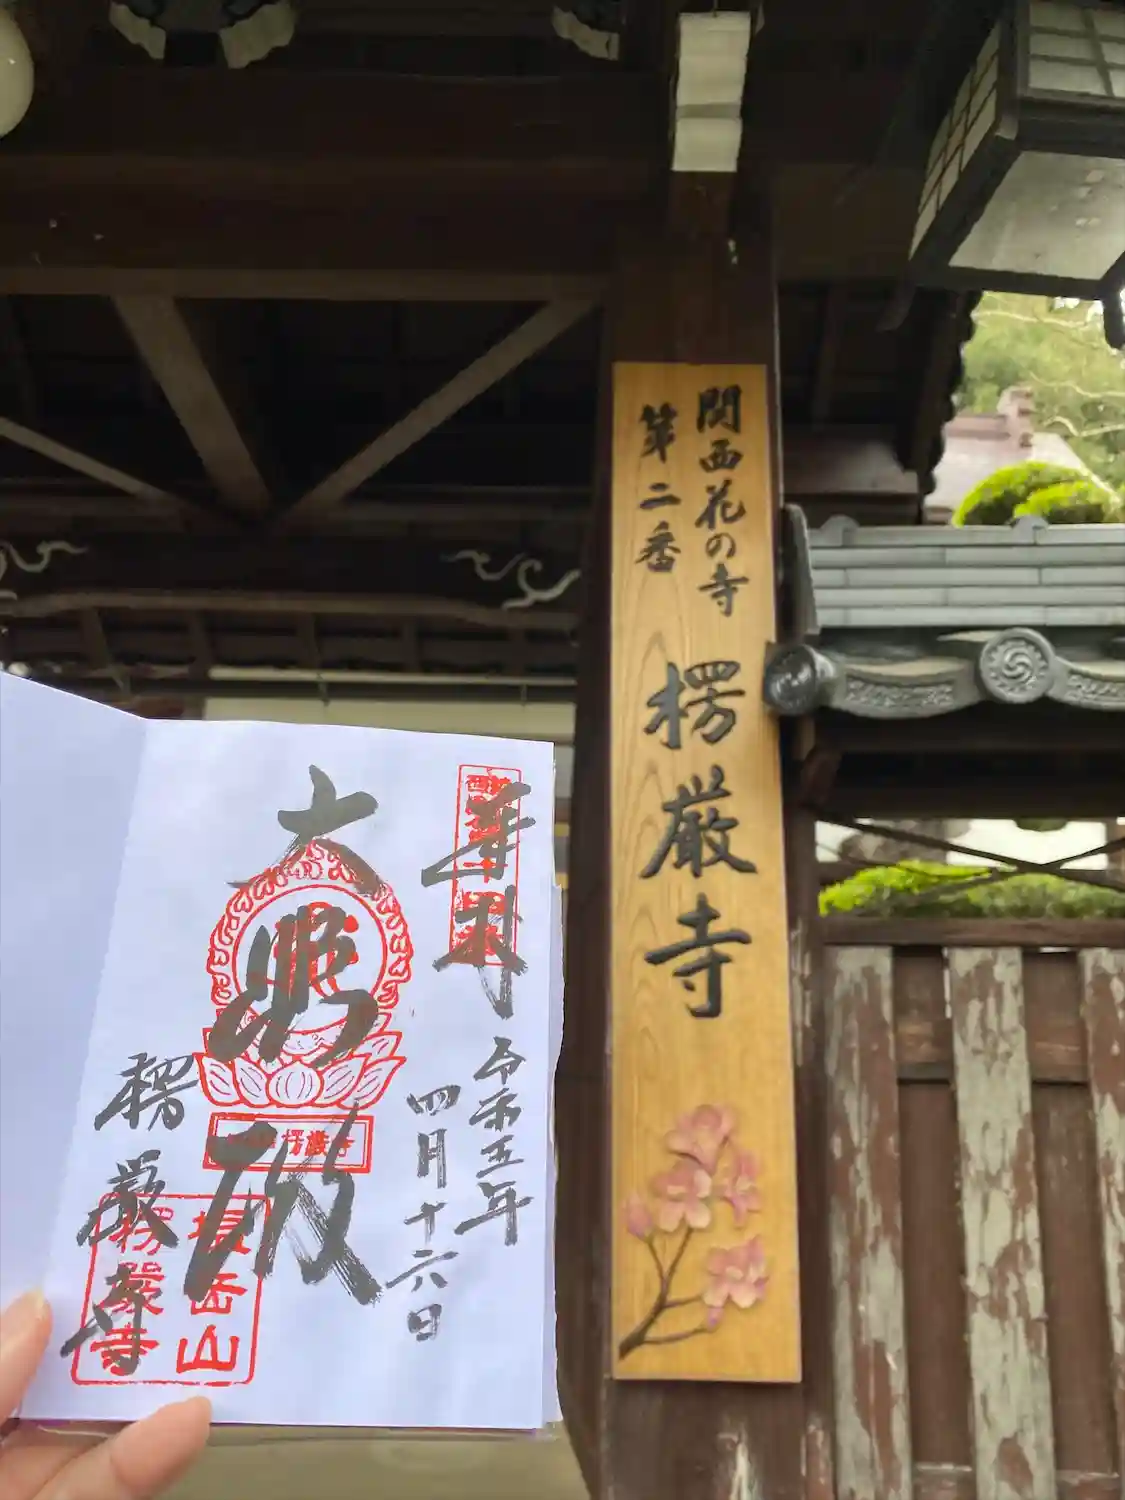 関西花の寺
第二番
楞厳寺
奉拝
令和五年
四月十六日
大悲殿
楞厳寺
楞厳寺
楞嚴寺